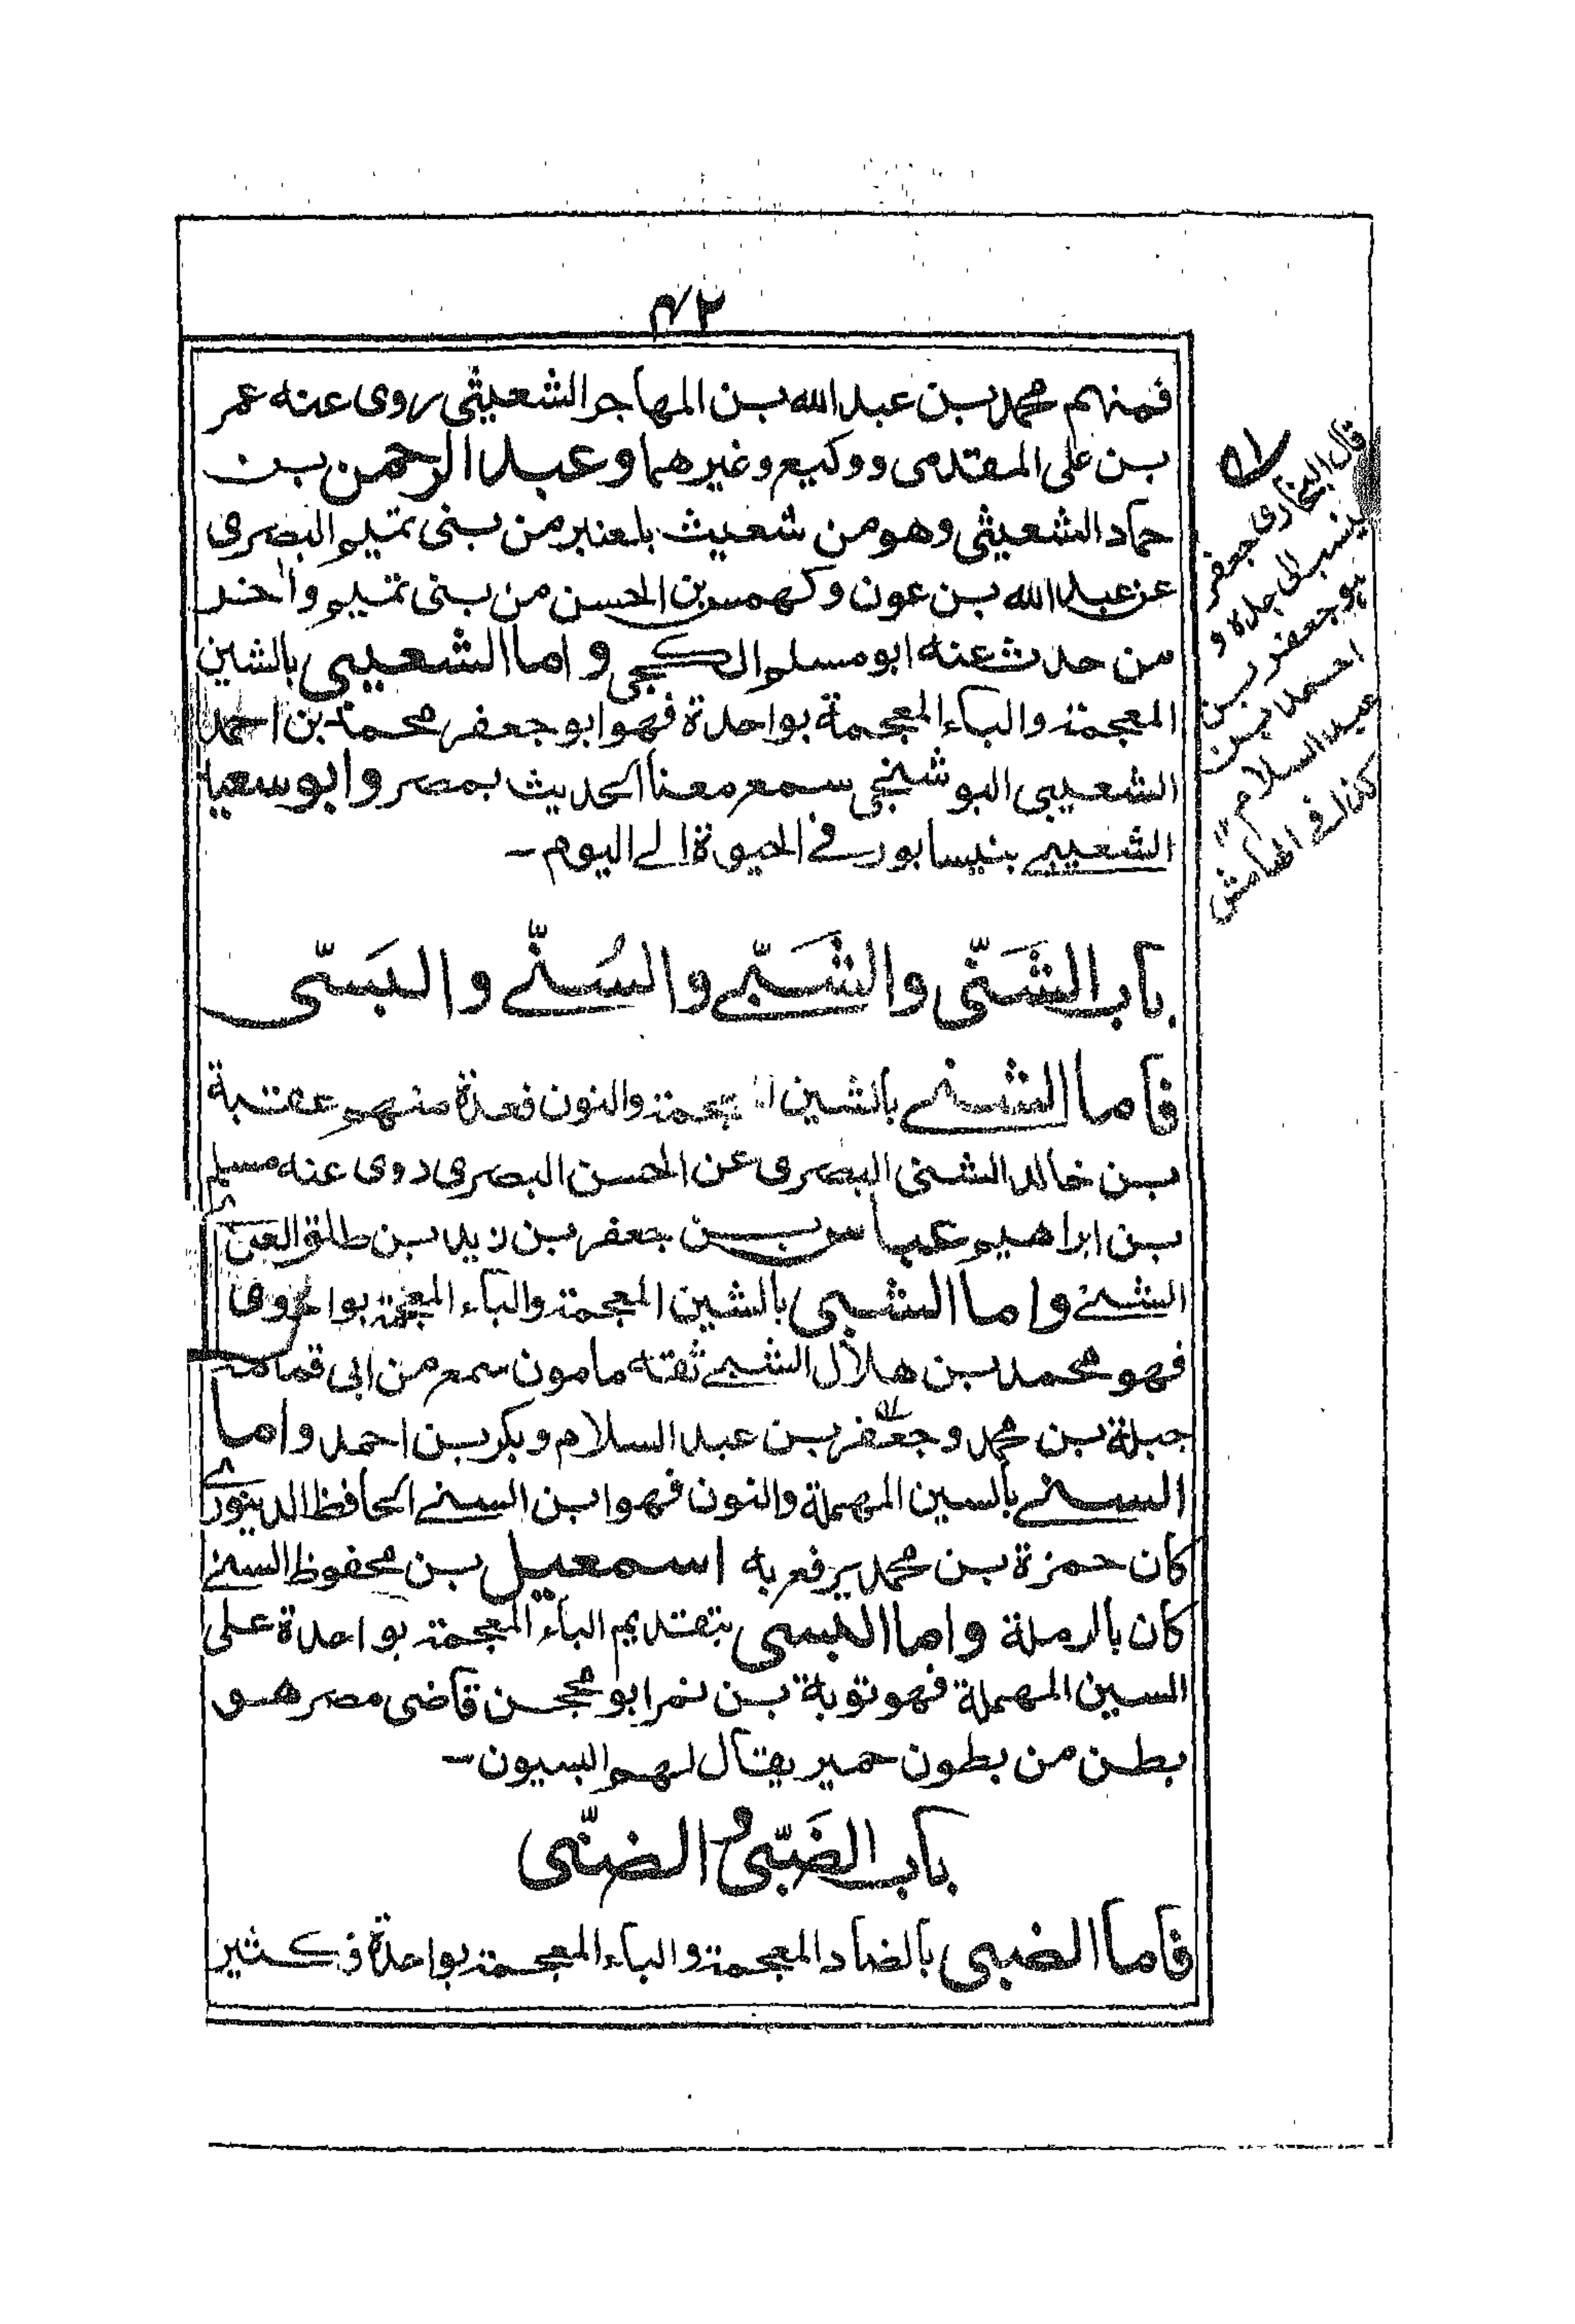 ٤٢
فمنهم محمد بن عبد الله بن المهاجر الشعيثي روى عنه عمر
بن على المقدمى ووكيع وغيرهما وعبد الرحمن بن
حماد الشعيثي وهو من شعيث بلعنبر من بنى تميم البصرى
عن عبد الله بن عون وكهمس بن الحسن من بنى تميم وآخر
من حدث عنه ابو مسلم الكجى واما الشعيبى بالشين
المعجمة والباء المعجمة بواحدة فهو ابو جعفر محمد بن احمد
الشعيبى البوشنجى سمع معنا الحديث بمصر وابو سعيد
الشعيبى بنيسابور فى الحيوة الى اليوم -
باب الشَنّى والشَبّى والسُنّى والبَسّى
فاما الشنى بالشين المعجمة والنون فعدة منهم عقبة
بن خالد الشنى البصرى عن الحسن البصرى روى عنه مسلم
بن ابراهيم عباس بن جعفر بن زيد بن طلق العبدى
الشنى واما الشبى بالشين المعجمة والباء المعجمة بواحدة
فهو محمد بن هلال الشبى ثقة مامون سمع من ابى قمامة
جبلة بن محمد وجعفر بن عبد السلام وبكر بن احمد واما
السنى بالسين المهملة والنون فهو ابن السنى الحافظ الدينورى
كان حمزة بن محمد يرفع به اسمعيل بن محفوظ السنى
كان بالرملة واما البسى بتقديم الباء المعجمة بواحدة على
السين المهملة فهو توبة بن نمر ابو محجن قاضى مصر هو
بطن من بطون حمير يقال لهم البسيون -
باب الضَبّى و الضنّى
فاما الضبى بالضاد المعجمة والباء المعجمة بواحدة فكثير
قال البخارى جعفر
ينسب الى جده و
هو جعفر بن
احمد بن
عبد السلام"
كذا فى الهامش